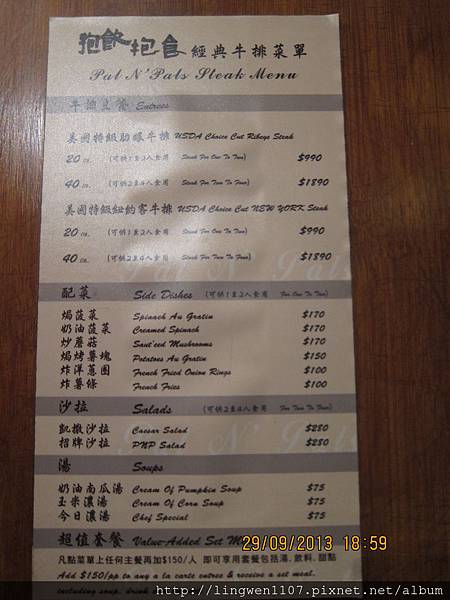 狍飲抱食 經典牛排菜單
Pal N' Pals Steak Menu
牛排主餐 Entrees
美國特級肋眼牛排 USDA Choice Cut Ribeye Steak
20 oz. (可供1至2人食用 Steak For One To Two) $990
40 oz. (可供2至4人食用 Steak For Two To Four) $1890
美國特級紐約客牛排 USDA Choice Cut NEW YORK Steak
20 oz. (可供1至2人食用 Steak For One To Two) $990
40 oz. (可供2至4人食用 Steak For Two To Four) $1890
Pal N' Pals
配菜 Side Dishes (可供1至2人食用 For One To Two)
焗菠菜 Spinach Au Gratin $170
奶油菠菜 Creamed Spinach $170
炒蘑菇 Saut'eed Mushrooms $170
焗烤薯塊 Potatoes Au Gratin $150
炸洋蔥圈 French Fried Onion Rings $100
炸薯條 French Fries $100
沙拉 Salads (可供2至4人食用 For Two To Four)
凱撒沙拉 Caesar Salad $280
招牌沙拉 PNP Salad $280
湯 Soups
奶油南瓜湯 Cream Of Pumpkin Soup $75
玉米濃湯 Cream Of Corn Soup $75
今日濃湯 Chef Special $75
超值套餐 Value-Added Set
29/09/2013 18:59
凡點菜單上任何主餐再加$150/人 即可享用套餐包括湯,飲料,甜點
Add $150/pp to any a la carte entree & receive a set meal.
including soup, drink
http://lingwen1107.pixnet.net/album